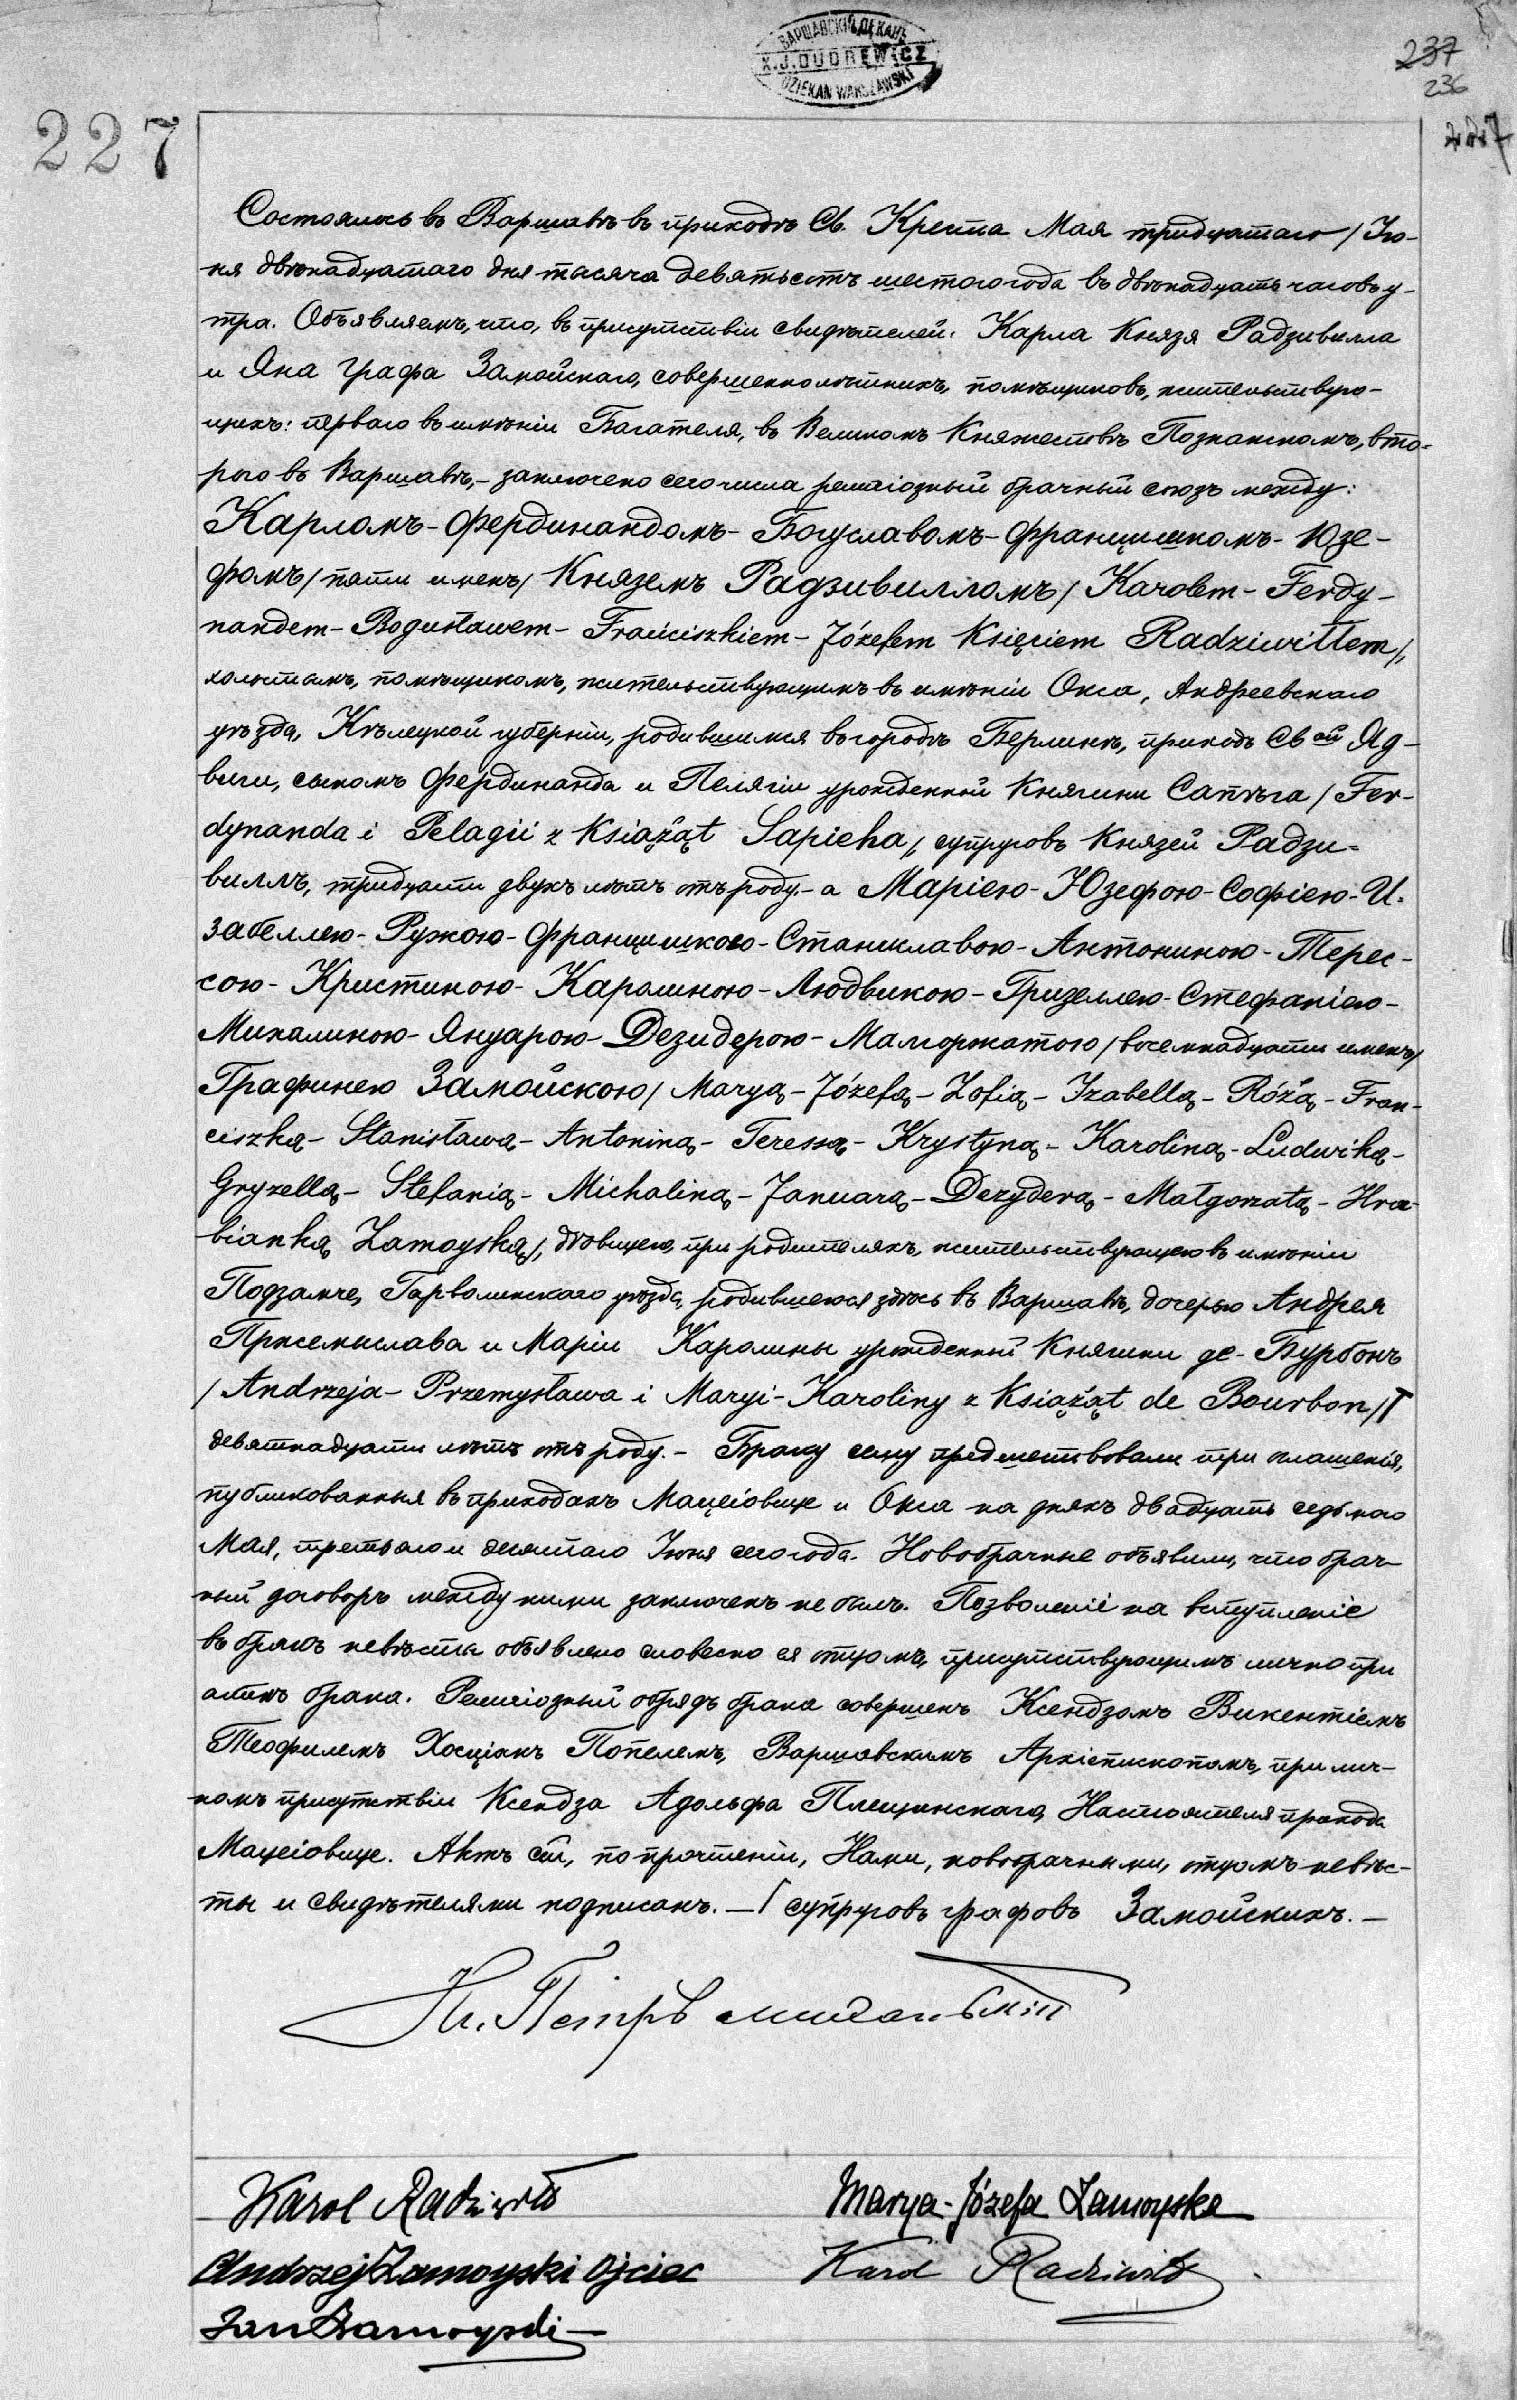 ВАРШАВСКІЙ ДЕКАНЪ
X.J.DUDREWICZ
DZIEKAN WARSZAWSKI
237
236
227
Состоялось въ Варшавѣ въ приходѣ Св. Креста Мая тридцатаго / Ію-
ня двѣнадцатаго дня тысяча девятьсотъ шестого года въ двѣнадцать часовъ у-
тра. Объявляемъ, что, въ присутствіи свидѣтелей: Карла Князя Радзивилла
и Яна Графа Замойскаго, совершеннолѣтнихъ, помѣщиковъ, жительствую-
щихъ: перваго въ имѣніи Багателя, въ Великомъ Княжествѣ Познанскомъ, вто-
рого въ Варшавѣ,- заключено сего числа религіозный брачный союзъ между:
Карломъ-Фердинандомъ-Богуславомъ-Францишкомъ-Юзе-
фомъ / пяти именъ / Княземъ Радзивилломъ / Karolem-Ferdy-
nandem-Bogusławem-Franciszkiem-Józefem Księciem Radziwiłłem /,
холостымъ, помѣщикомъ, жительствующимъ въ имѣніи Окса, Андреевскаго
уѣзда, Кѣлецкой губерніи, родившимся въ городѣ Берлинѣ, приходъ Св ой Яд-
виги, сыномъ Фердинанда и Пелягіи урожденной Княгини Сапѣга / Fer-
dynanda i Pelagii z Książąt Sapieha /, супруговъ Князей Радзи-
виллъ, тридцати двухъ лѣтъ отъ роду.- а Маріею-Юзефою-Софіею-И-
забеллею-Ружою-Францишкою-Станиславою-Антониною-Терес-
сою-Кристиною-Каролиною-Людвикою-Гризеллею-Стефаніею-
Михалиною-Януарою-Дезидерою-Малгоржатою / восемнадцати именъ /
Графинею Замойскою / Maryą-Józefą-Zofią-Izabellą-Różą-Fran-
ciszką-Stanisławą-Antoniną-Teressą-Krystyną-Karoliną-Ludwiką-
Gryzellą-Stefanią-Michaliną-Januarą-Dezyderą-Małgorzatą-Hra-
bianką Zamoyską /, дѣвицею, при родителяхъ, жительствующею въ имѣніи
Подзамче, Гарволинскаго уѣзда, родившеюся здѣсь въ Варшавѣ, дочерью Андрея
Пржемыслава и Маріи Каролины урожденной Княгини де-Бурбонъ
/ Andrzeja-Przemysława i Maryi-Karoliny z Książąt de Bourbon / Г
девятнадцати лѣтъ отъ роду.- Браку сему предшествовали три оглашенія,
публикованныя въ приходахъ Мацеіовице и Окса на дняхъ двадцать седьмого
Мая, третьяго и десятаго Іюня сего года. Новобрачные объявили, что брач-
ный договоръ между ними заключенъ не былъ. Позволеніе на вступленіе
въ бракъ невѣсты объявлено словесно ея отцомъ, присутствующимъ лично при
актѣ брака. Религіозный обрядъ брака совершенъ Ксендзомъ Викентіемъ
Теофилемъ Хосцякъ Попелемъ, Варшавскимъ Архіепископомъ, при лич-
номъ присутствіи Ксендза Адольфа Плещинскаго, Настоятеля прихода
Мацеіовице. Актъ сей, по прочтеніи, Нами, новобрачными, отцомъ невѣс-
ты и свидѣтелями подписанъ.- Г супруговъ графовъ Замойскихъ.-
Кс. Петръ
Karol Radziwiłł Marya-Józefa Zamoyska
Andrzej Zamoyski Ojciec Karol Radziwiłł
Jan Zamoyski